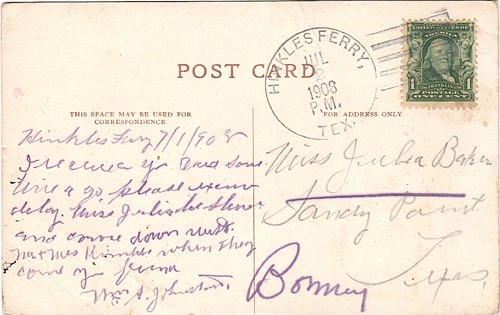 POST CARD
HINKLES FERRY,
JUL
2
1908
P.M.
TEX.
UNITED STATES OF AMERICA
FRANKLIN
1 POSTAGE 1
ONE CENT
THIS SPACE MAY BE USED FOR
CORRESPONDENCE
FOR ADDRESS ONLY
Hinkles Fery 7/1/908
I received yr Card some
time a go please excuse
delay. Miss Julia
and come down with
Mr & Mrs Kimble when they
come yr friend
Wm S. Johnston
Miss Julia Baker
Sandy Point
Texas
Bonney